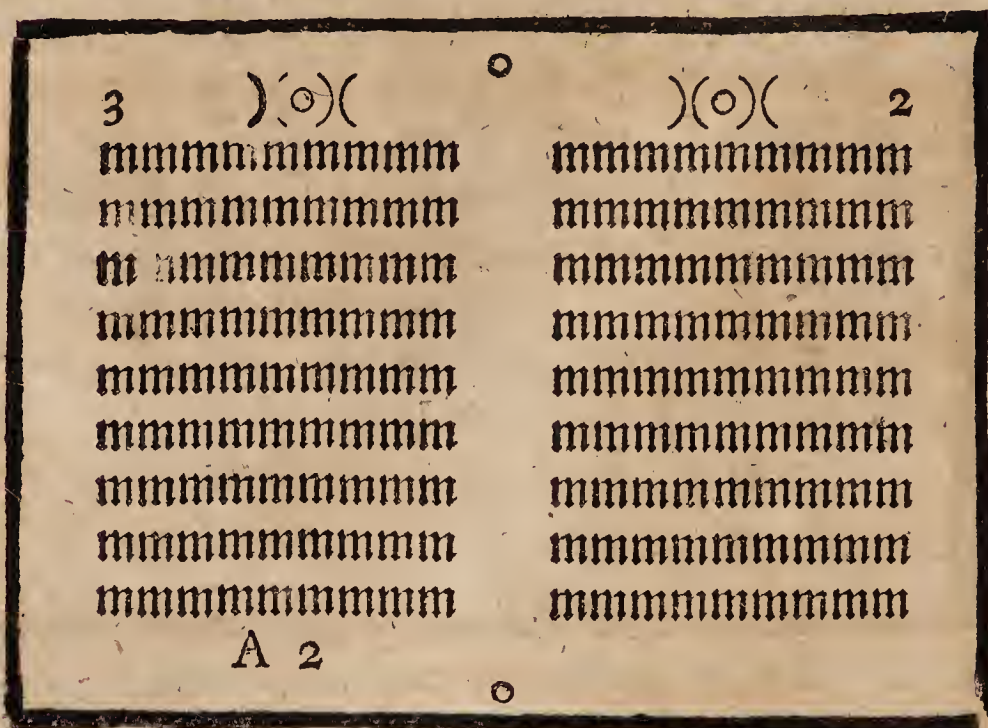 o
3 )(o)(
mmmmmmmmm
mmmmmmmmm
mmmmmmmmm
mmmmmmmmm
mmmmmmmmm
mmmmmmmmm
mmmmmmmmm
mmmmmmmmm
mmmmmmmmm
A 2
)(o)( 2
mmmmmmmmm
mmmmmmmmm
mmmmmmmmm
mmmmmmmmm
mmmmmmmmm
mmmmmmmmm
mmmmmmmmm
mmmmmmmmm
mmmmmmmmm
o